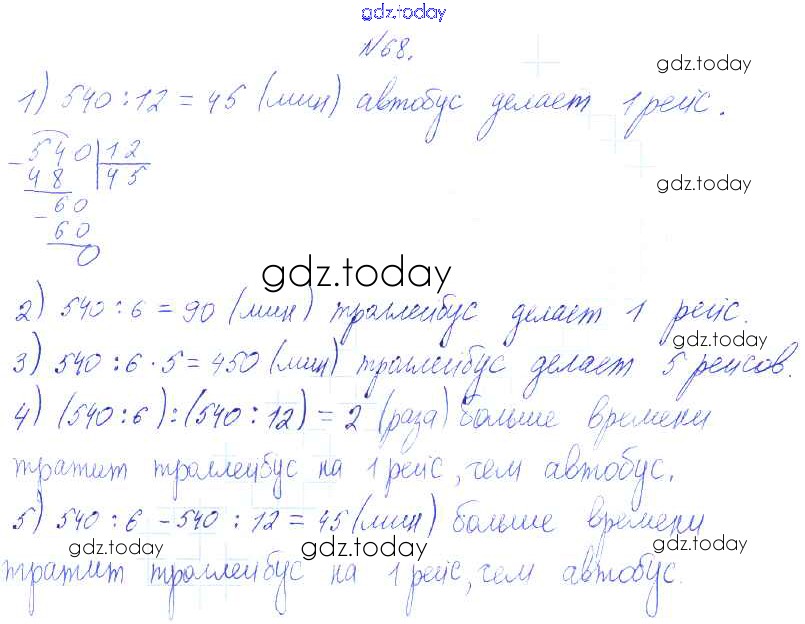 gdz.today
№68.
gdz.today
1) 540 : 12 = 45 (мин) автобус делает 1 рейс.
- 540 | 12
48 | 45
gdz.today
- 60
60
0
gdz.today
2) 540 : 6 = 90 (мин) троллейбус делает 1 рейс.
gdz.today
3) 540 : 6 · 5 = 450 (мин) троллейбус делает 5 рейсов.
4) (540 : 6) : (540 : 12) = 2 (раза) больше времени
тратит троллейбус на 1 рейс, чем автобус.
5) 540 : 6 - 540 : 12 = 45 (мин) больше времени
gdz.today gdz.today gdz.today
тратит троллейбус на 1 рейс, чем автобус.